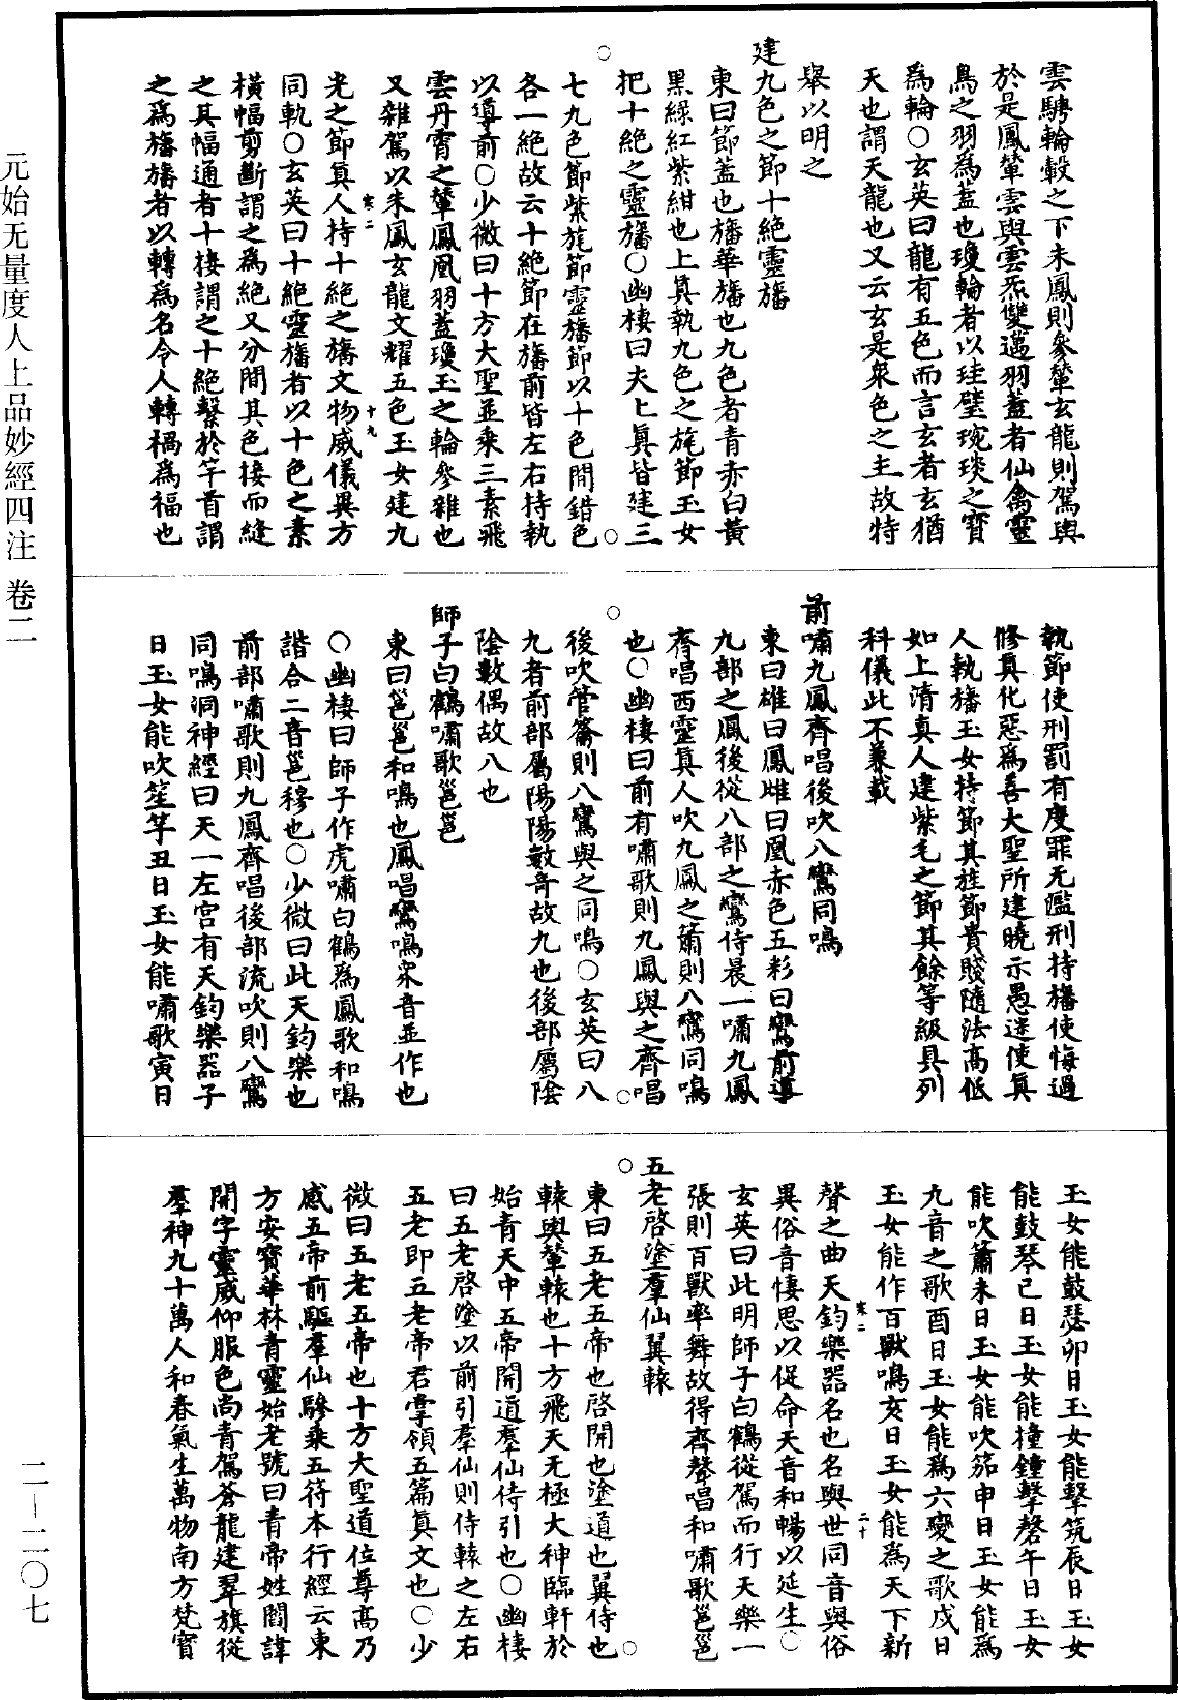 雲騁輪轂之下朱鳳則參輦玄龍則駕輿
於是鳳輦雲輿雲炁雙邁羽蓋者仙禽靈
鳥之羽為蓋也瓊輪者以珪璧琬琰之寳
為輪○玄英曰龍有五色而言玄者玄猶
天也謂天龍也又云玄是衆色之主故特
舉以明之
建九色之節十絶靈旛
東曰節蓋也旛華旛也九色者青赤白黃
黑綠紅紫紺也上真執九色之旄節玉女
把十絶之靈旛○幽棲曰夫上真皆建三
七九色節紫旄節靈旛節以十色間錯色
各一絶故云十絶節在旛前皆左右持執
以導前○少微曰十方大聖並乘三素飛
雲丹霄之輦鳳凰羽蓋瓊玉之輪參雜也
又雜駕以朱鳳玄龍文耀五色玉女建九
光之節真人持十絶之旛文物威儀異方
同軌○玄英曰十絶靈旛者以十色之素
橫幅剪斷謂之為絶又分間其色接而縫
之其幅通者十棲謂之十絶繫於竿首謂
之爲旛旛者以轉為名令人轉禍爲福也
執節使刑罰有度罪无濫刑持旛使悔過
修真化惡爲善大聖所建曉示愚迷使真
人執旛玉女持節其旌節貴賤隨法高低
如上清真人建紫毛之節其餘等級具列
科儀此不兼載
前嘯九鳳齊唱後吹八鸞同鳴
東曰雄曰鳳雌曰凰赤色五彩曰鸞前導
九部之鳳後從八部之鸞侍晨一嘯九鳳
齊唱西靈真人吹九鳳之簫則八鸞同鳴
也○幽棲曰前有嘯歌則九鳳與之齊唱
後吹管籥則八鸞與之同鳴○玄英曰八
九者前部屬陽陽數竒故九也後部屬陰
陰數偶故八也
師子白鶴嘯歌邕邕
東曰邕邕和鳴也鳳唱鸞鳴衆音並作也
○幽棲曰師子作虎嘯白鶴爲鳳歌和鳴
諧合二音邕穆也○少微曰此天鈞樂也
前部嘯歌則九鳳齊唱後部流吹則八鸞
同鳴洞神經曰天一左宫有天鈞樂器子
日玉女能吹笙竽丑日玉女能嘯歌寅日
玉女能鼓瑟卯日玉女能擊筑辰日玉女
能鼓琴巳日玉女能撞鐘擊磬午日玉女
能吹簫未日玉女能吹笳申日玉女能為
九音之歌酉日玉女能爲六變之歌戌日
玉女能作百獸鳴亥日玉女能為天下新
聲之曲天鈞樂器名也名與世同音與俗
異俗音悽思以促命天音和暢以延生○
玄英曰此明師子白鶴從駕而行天樂一
張則百獸率舞故得齊聲唱和嘯歌邕邕
五老啓塗羣仙翼轅
東曰五老五帝也啓開也塗道也翼侍也
轅輿輦轅也十方飛天无極大神臨軒於
始青天中五帝開道羣仙侍引也○幽棲
曰五老啓塗以前引羣仙則侍轅之左右
五老即五老帝君掌領五篇真文也○少
微曰五老五帝也十方大聖道位尊高乃
感五帝前驅羣仙驂乘五符本行經云東
方安寳華林青靈始老號曰青帝姓閻諱
開字靈威仰服色尚青駕蒼龍建翠旗從
羣神九十萬人和春氣生萬物南方梵寳
元始无量度人上品妙經四注 卷二
二－二〇七